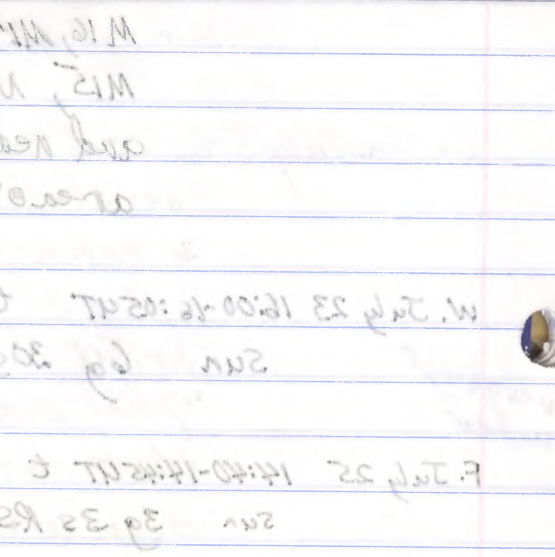 M16, M17
M15, N
and nea
area o
W. July 23 16:00-16:05 UT t
Sun 6g 30s
F. July 25 14:40-14:45 UT t
Sun 3g 3s R5